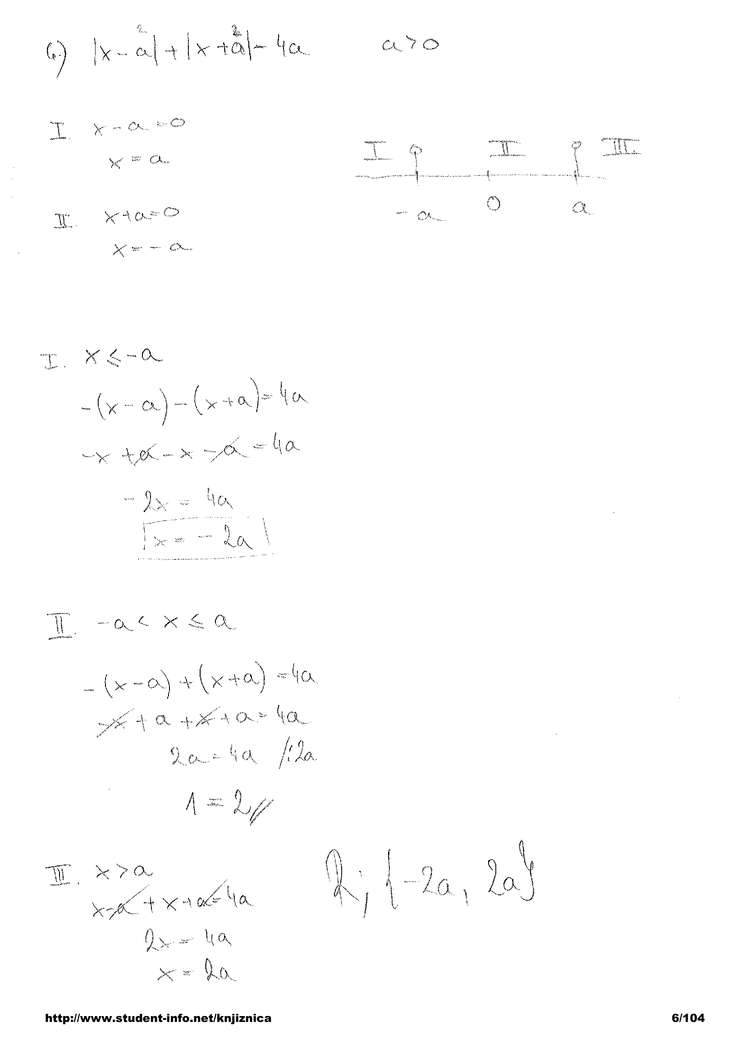 6.) |x-a²|+|x+a²|-4a a>0
I x-a=0
x=a
II. x+a=0
x=-a
I II III
-a 0 a
I. x≤-a
-(x-a)-(x+a)=4a
-x+a-x-a=4a
-2x=4a
x=-2a
II. -a<x≤a
-(x-a)+(x+a)=4a
-x+a+x+a=4a
2a=4a /:2a
1=2//
III. x>a
x-a+x+a=4a
2x=4a
x=2a
R; {-2a, 2a}
http://www.student-info.net/knjiznica 6/104